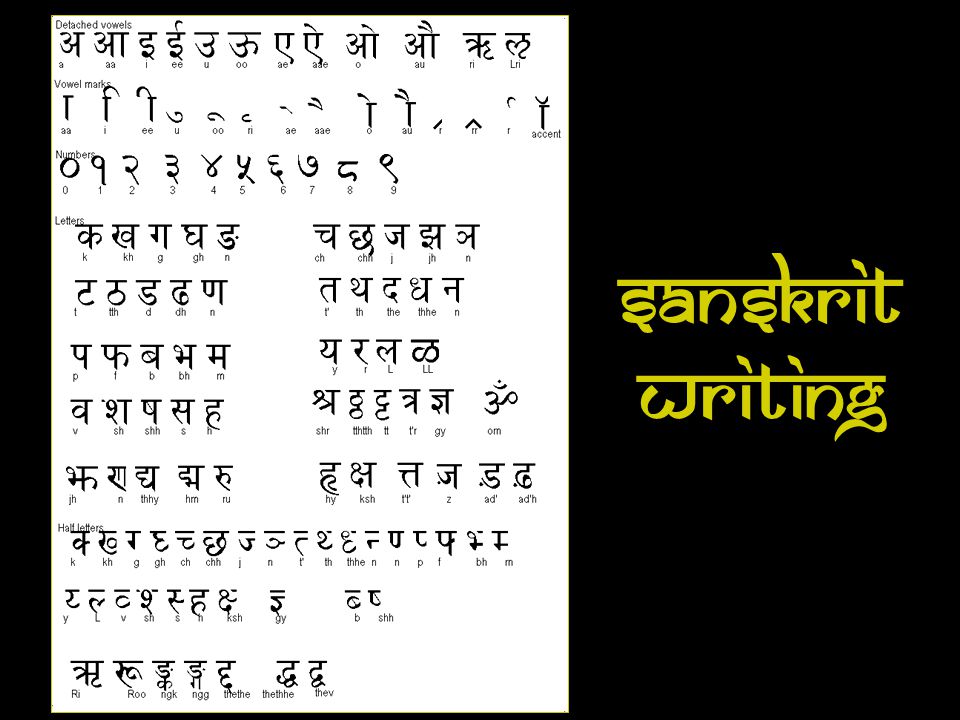 Detached vowels
अ आ इ ई उ ऊ ए ऐ ओ औ ऋ ऌ
a aa i ee u oo ae aae o au ri Lri
Vowel marks
ा ि ी ु ू ृ े ै ो ौ ॅ
aa i ee u oo ri ae aae o au r rr r accent
Numbers
० १ २ ३ ४ ५ ६ ७ ८ ९
0 1 2 3 4 5 6 7 8 9
Letters
क ख ग घ ङ च छ ज झ ञ
k kh g gh n ch chh j jh n
ट ठ ड ढ ण त थ द ध न
t tth d dh n t' th the thhe n
प फ ब भ म य र ल ळ
p f b bh m y r L LL
व श ष स ह श्र ठ्ठ ट्ट त्र ज्ञ ॐ
v sh shh s h shr tthtth tt t'r gy om
झ ण द्य द्म रु हृ क्ष त्त ज़ ड़ ढ़
jh n thhy hm ru hy ksh t't' z ad' ad'h
Half letters
क्‍ ख्‍ ग्‍ घ्‍ च्‍ छ्‍ ज्‍ ञ्‍ त्‍ थ्‍ ध्‍ न्‍ ण्‍ प्‍ फ्‍ भ्‍ म्‍
k kh g gh ch chh j n t' th thhe n n p f bh m
य्‍ ल्‍ व्‍ श्‍ स्‍ ह्‍ क्ष्‍ ज्ञ्‍ ब्‍ ष्‍
y L v sh s h ksh gy b shh
ऋ ङ्क ङ्ग द्द द्ध द्व
Ri Roo ngk ngg thethe thethhe thev
SANSKRIT
WRITING